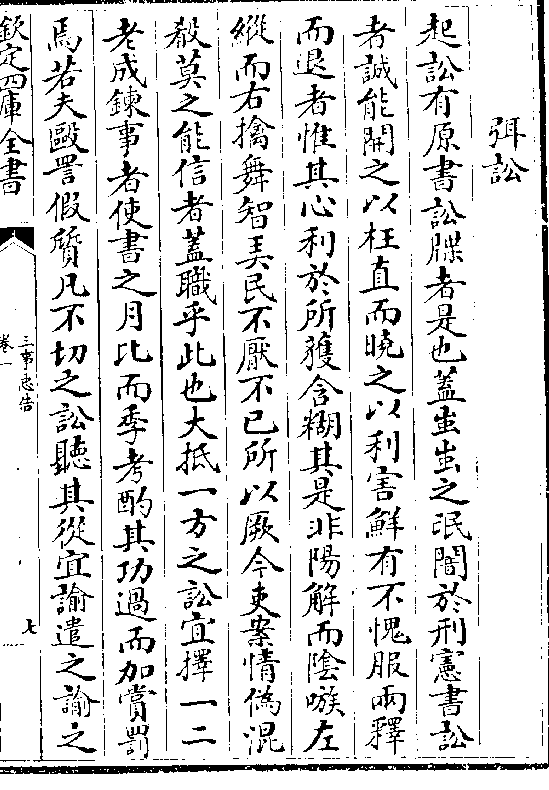 弭訟
起訟有原書訟牒者是也蓋蚩蚩之氓闇於刑憲書訟
者誠能開之以枉直而曉之以利害鮮有不愧服兩釋
而退者惟其心利於所獲含糊其是非陽解而隂嗾左
縦而右擒舞智弄民不厭不已所以厥今吏案情偽混
殽莫之能信者蓋職乎此也大抵一方之訟宜擇一二
老成鍊事者使書之月比而季考酌其功過而加賞罰
焉若夫毆詈假質凡不切之訟聽其從宜諭遣之諭之
欽定四庫全書
三事忠告
卷一
七